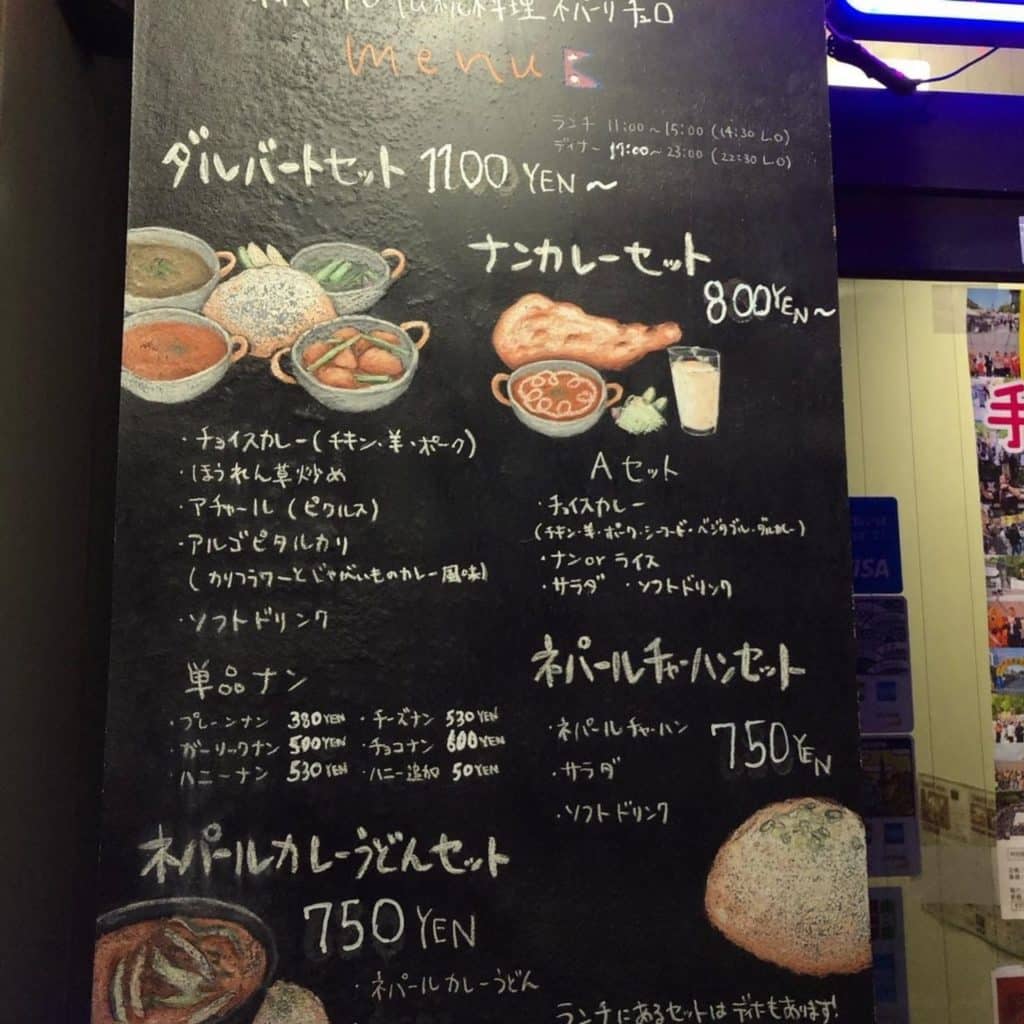 伝統料理 ネパーリチュロ
menu
ランチ 11:00～15:00 (14:30 L.O)
ディナー 17:00～23:00 (22:30 L.O)
ダルバートセット 1100 YEN～
ナンカレーセット
800YEN～
・チョイスカレー(チキン・羊・ポーク)
・ほうれん草炒め
・アチャール (ピクルス)
・アルゴピタルカリ
(カリフラワーとじゃがいものカレー風味)
・ソフトドリンク
Aセット
・チョイスカレー
(チキン・羊・ポーク・シーフード・ベジタブル・ダルカレー)
・ナン or ライス
・サラダ ・ソフトドリンク
単品ナン
・プレーンナン 380YEN ・チーズナン 530YEN
・ガーリックナン 500YEN ・チョコナン 600YEN
・ハニーナン 530YEN ・ハニー追加 50YEN
ネパールチャーハンセット
・ネパールチャーハン
750YEN
・サラダ
・ソフトドリンク
ネパールカレーうどんセット
750YEN
・ネパールカレーうどん
ランチにあるセットはディナーもあります!
VISA
手